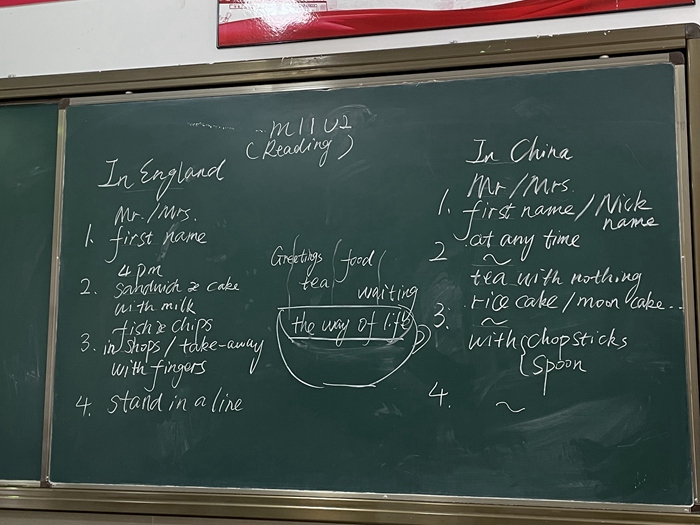 M11U2
(Reading)
In England
Mr./Mrs.
1. first name
4 pm
2. sandwich & cake
with milk
fish & chips
3. in shops / take-away
with fingers
4. stand in a line
Greetings food
tea
waiting
the way of life
In China
Mr/Mrs.
1. first name / Nick
name
at any time
2 ~
tea with nothing
rice cake / moon cake...
3. ~
with { chopsticks
spoon
4. ~